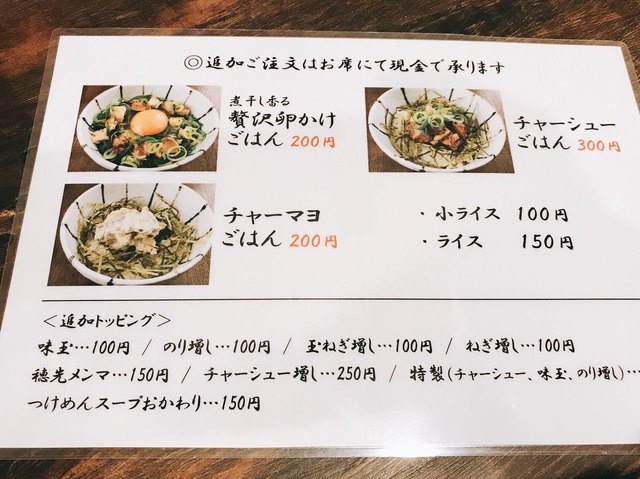 ◎追加ご注文はお席にて現金で承ります
煮干し香る
贅沢卵かけ
ごはん 200円
チャーシュー
ごはん 300円
チャーマヨ
ごはん 200円
・小ライス 100円
・ライス 150円
＜追加トッピング＞
味玉…100円 / のり増し…100円 / 玉ねぎ増し…100円 / ねぎ増し…100円
穂先メンマ…150円 / チャーシュー増し…250円 / 特製(チャーシュー、味玉、のり増し)…
つけめんスープおかわり…150円